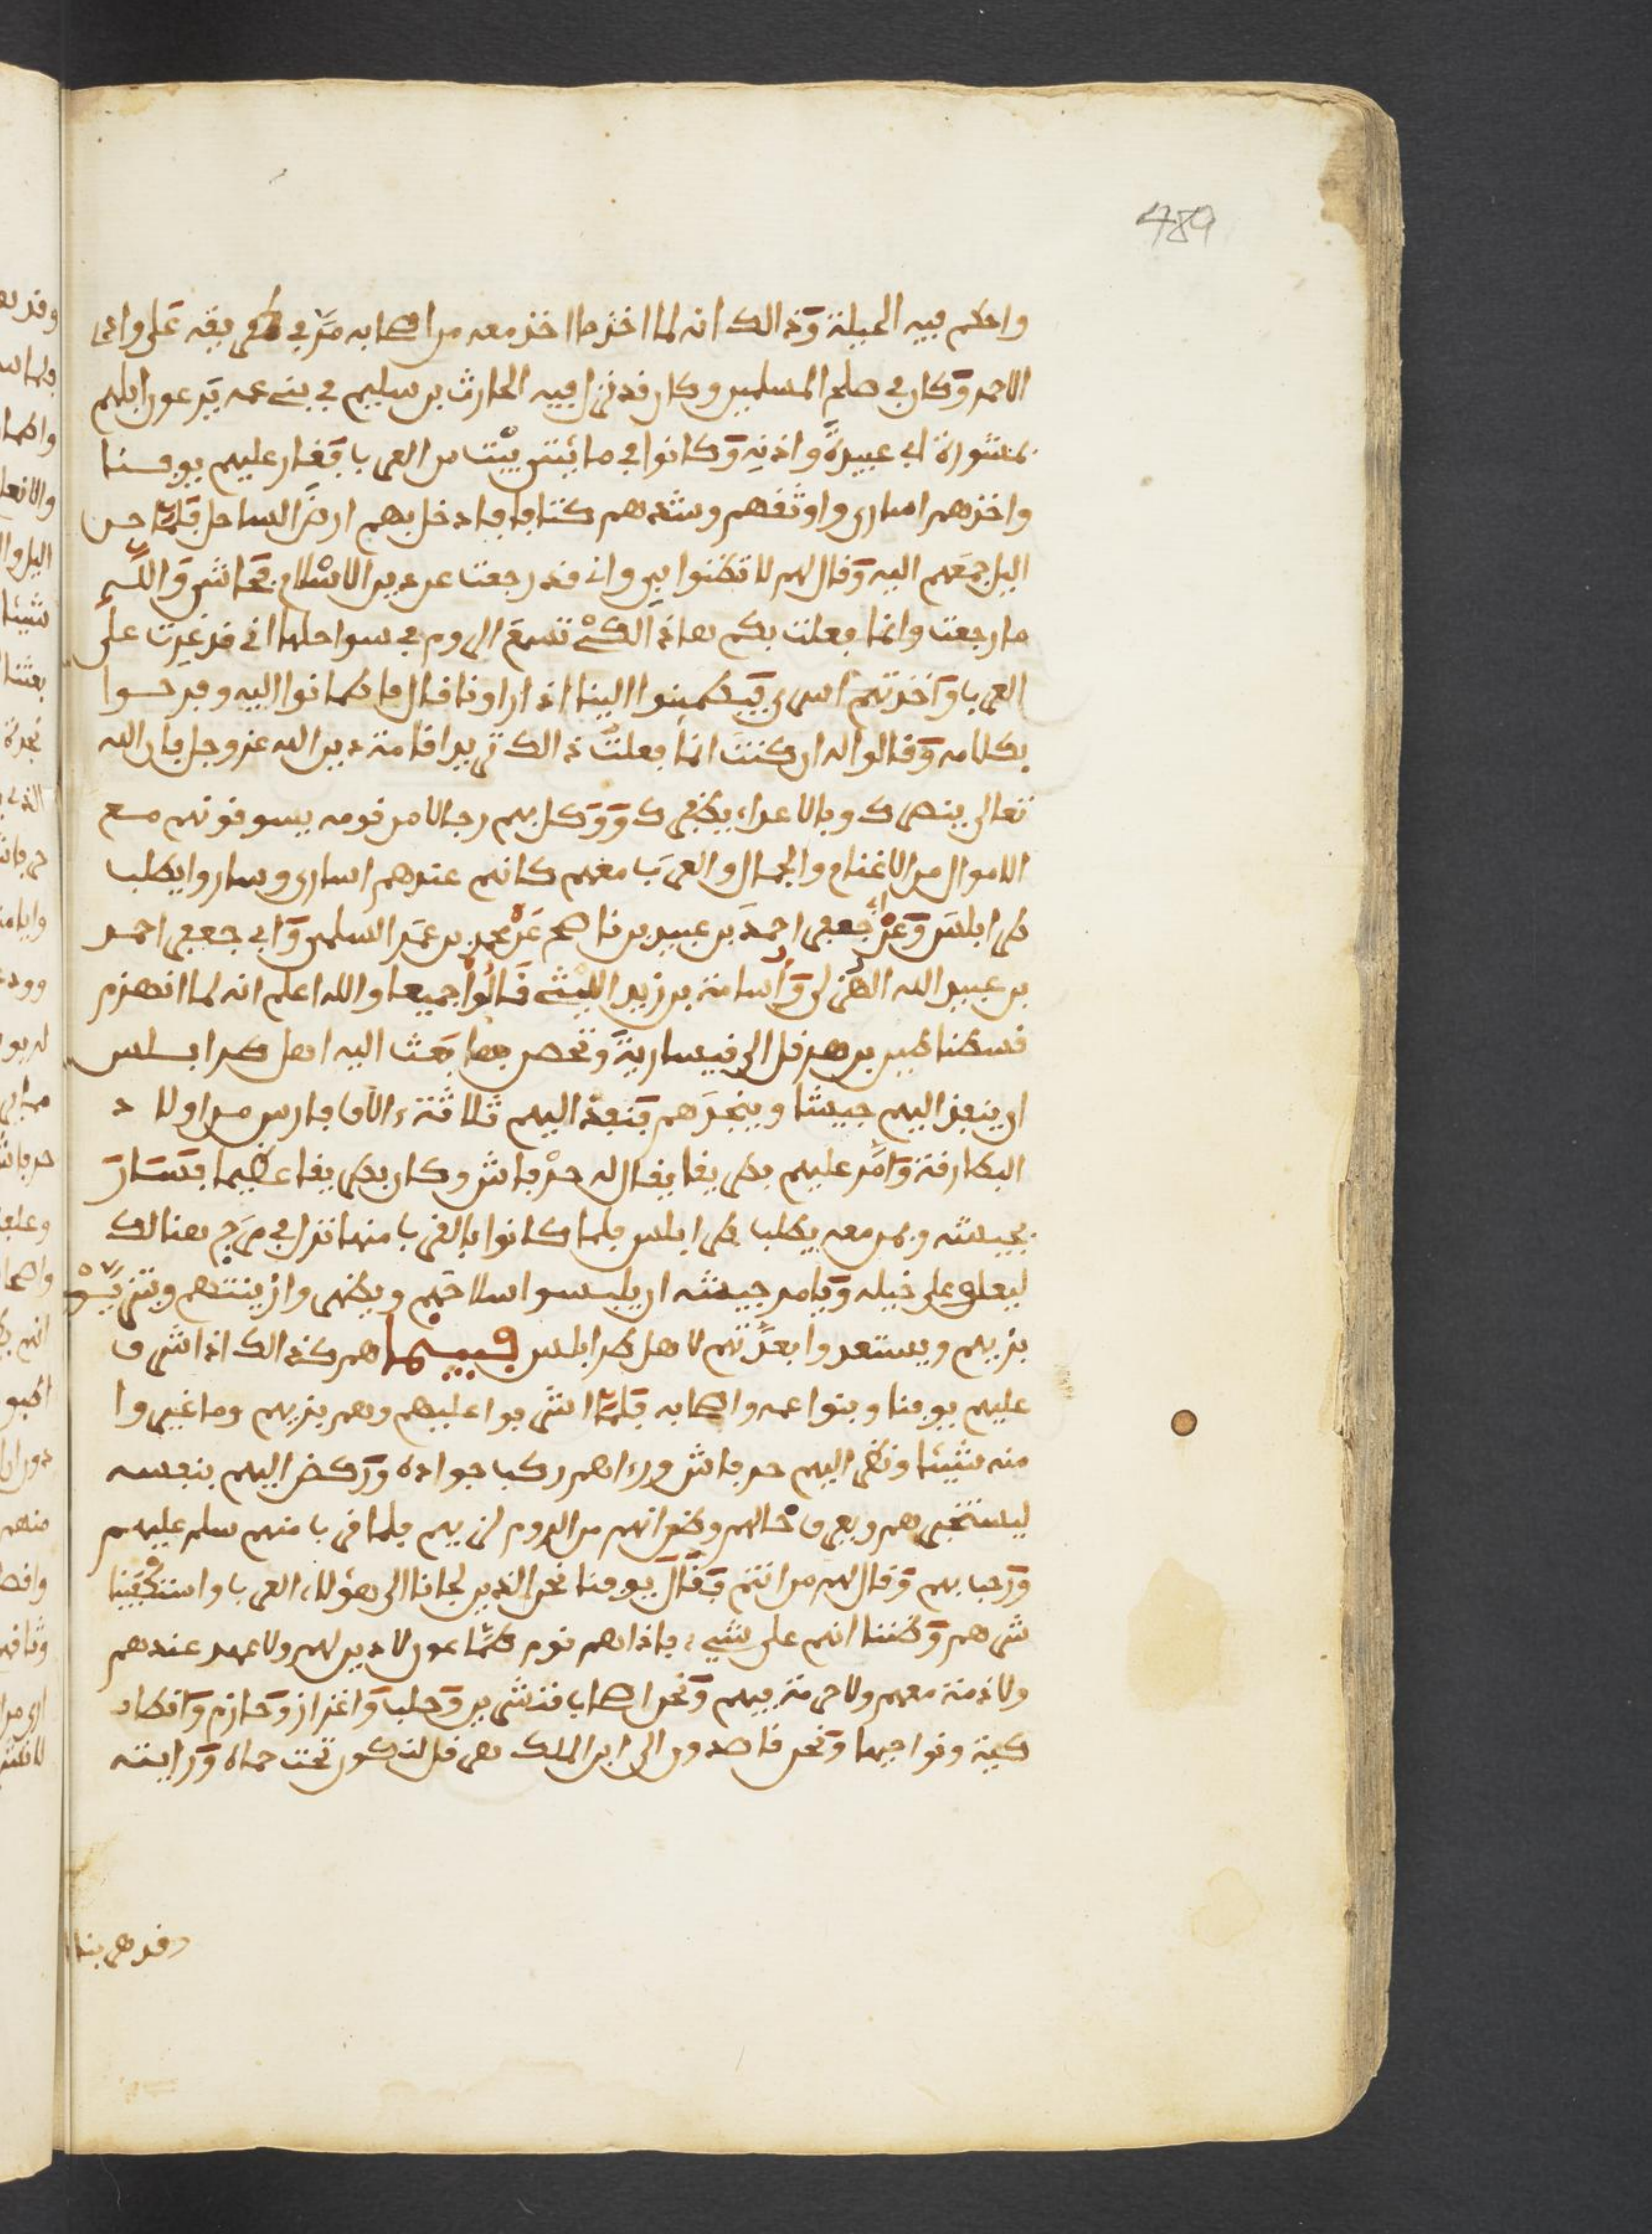 489
واحكم فيه الحيلة وذالك انه لما اخذ ما اخذ معه من اصحابه مر في طريقه على وادى
الاحمر وكان في صلح المسلمين وكان قد نزل فيه الحارث بن سليم في بني عمه يرعون ابلهم
بمشورة ابي عبيدة واذنه وكانوا في مائتى بيت من العرب فغار عليهم يوقنا
واخذهم اسارى واوثقهم وشدهم كتافا فادخل بهم ارض الساحل فلما جن
اليل جمعهم اليه وقال لهم لا تظنوا بي واني قد رجعت عن دين الاسلام فحاشى والله
ما رجعت وانما فعلت بكم هاذا لكي تسمع الروم في سواحلها اني قد غرت على
العرب واخذتهم اسرى فيطمنوا الينا اذا راونا قال فاطمانوا اليه وفرحوا
بكلامه وقالوا له ان كنت انما فعلت ذالك تريد اقامة دين الله عز وجل فان الله
تعالى ينصرك وبالاعداء يظفرك ووكل بهم رجالا من قومه يسوقونهم مع
الاموال من الاغنام والجمال والعرب معهم كانهم عندهم اسارى وساروا يطلب
طرابلس وعن ابي جعفر احمد بن عبيد بن ناصح عن محمد بن عمر السلمى وابي جعفر احمد
بن عبيد الله الهذلى واسامة بن زيد الليثى قالوا جميعا والله اعلم انه لما انهزم
قسطنطين بن هرقل الى قيسارية وتحصن بها بعث اليه اهل طرابلس
ان ينفذ اليهم جيشا وينجدهم فنفذ اليهم ثلاثة ءالاف فارس من اولاد
البطارقة وامر عليهم بطريقا يقال له جرفاش وكان بطريقا عظيما فسار
بجيشه وبمن معه يطلب طرابلس فلما كانوا بالقرب منها نزل في مرج هنالك
ليعلف على خيله ويامر جيشه ان يلبسوا سلاحهم ويظهروا زينتهم ويتزينوا
بزيهم ويستعدوا بعدتهم لاهل طرابلس فبينما هم كذالك اذ اشرف
عليهم يوقنا وبنوا عمه واصحابه فلما اشرفوا عليهم وهم بزيهم وما غيروا
منه شيئا ونظر اليهم جرفاش وراهم ركب جواده وركض اليهم بنفسه
ليستخبرهم ويعرف حالهم وظن انهم من الروم لزيهم فلما قرب منهم سلم عليهم
ورحب بهم وقال لهم من انتم فقال يوقنا نحن الذين لجانا الى هؤلاء العرب واستكفينا
شرهم وظننا انهم على شيء فاذا هم قوم طماعون لا دين لهم ولا عهد عندهم
ولا ذمة معهم ولا حرمة فيهم ونحن اصحاب قنشرين وحلب واعزاز وحازم وانطا
كية ونواحيها ونحن قاصدون الى ابن الملك هرقل لنكون تحت حماه ورايته
وقد هربنا